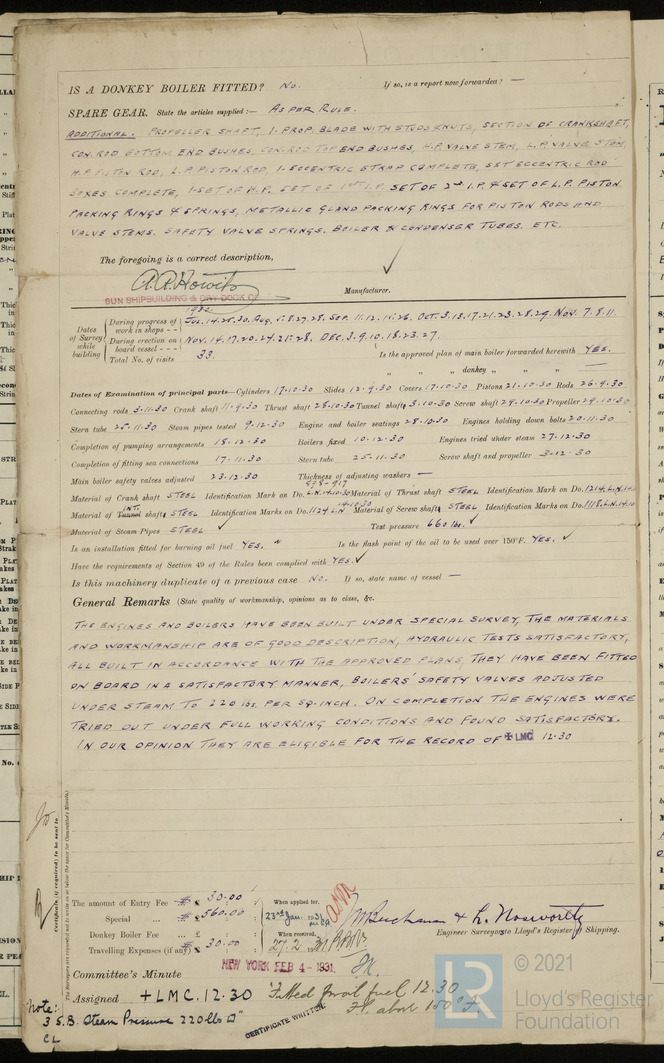 IS A DONKEY BOILER FITTED? No. If so, is a report now forwarded? —
SPARE GEAR. State the articles supplied:— AS PER RULE.
ADDITIONAL. PROPELLER SHAFT, 1-PROP. BLADE WITH STUDS & NUTS, SECTION OF CRANKSHAFT,
CON. ROD BOTTOM END BUSHES, CON. ROD TOP END BUSHES, H.P. VALVE STEM, L.P. VALVE STEM,
H.P. PISTON ROD, L.P. PISTON ROD, 1-ECCENTRIC STRAP COMPLETE, SET ECCENTRIC ROD
BOXES COMPLETE, 1-SET OF H.P. SET OF 1ST I.P. SET OF 2nd I.P. & SET OF L.P. PISTON
PACKING RINGS & SPRINGS, METALLIC GLAND PACKING RINGS FOR PISTON RODS AND
VALVE STEMS. SAFETY VALVE SPRINGS. BOILER & CONDENSER TUBES. ETC.
The foregoing is a correct description,
A.A. Howitz
SUN SHIPBUILDING & DRY DOCK CO Manufacturer.
1930
Dates of Survey while building
During progress of work in shops - - JUL. 14. 25. 30. Aug. 5. 8. 27. 28. SEP. 11. 12. 15. 26. OCT. 3. 13. 17. 21. 23. 28. 29. NOV. 7. 8. 11.
During erection on board vessel - - - NOV. 14. 17. 20. 24. 21. 28. DEC. 3. 9. 10. 18. 23. 27.
Total No. of visits 33. Is the approved plan of main boiler forwarded herewith YES.
" " " donkey " " " —
Dates of Examination of principal parts—Cylinders 17.10.30 Slides 12.9.30 Covers 17.10.30 Pistons 21.10.30 Rods 26.9.30
Connecting rods 3.11.30 Crank shaft 11.9.30 Thrust shaft 28.10.30 Tunnel shafts 3.10.30 Screw shaft 29.10.30 Propeller 29.10.30
Stern tube 25.11.30 Steam pipes tested 9.12.30 Engine and boiler seatings 28.10.30 Engines holding down bolts 20.11.30
Completion of pumping arrangements 18.12.30 Boilers fixed 10.12.30 Engines tried under steam 27.12.30
Completion of fitting sea connections 17.11.30 Stern tube 25.11.30 Screw shaft and propeller 3.12.30
Main boiler safety valves adjusted 23.12.30 Thickness of adjusting washers —
Material of Crank shaft STEEL Identification Mark on Do. L.N.14.10.30 Material of Thrust shaft STEEL Identification Mark on Do. 1214 L.N.
Material of Tunnel INT. shafts STEEL Identification Marks on Do. 1124 L.N. Material of Screw shaft STEEL Identification Marks on Do. 1118 L.N.
Material of Steam Pipes STEEL Test pressure 660 lbs.
Is an installation fitted for burning oil fuel YES. Is the flash point of the oil to be used over 150°F. YES.
Have the requirements of Section 49 of the Rules been complied with YES.
Is this machinery duplicate of a previous case NO. If so, state name of vessel —
General Remarks (State quality of workmanship, opinions as to class, &c.
THE ENGINES AND BOILERS HAVE BEEN BUILT UNDER SPECIAL SURVEY, THE MATERIALS
AND WORKMANSHIP ARE OF GOOD DESCRIPTION, HYDRAULIC TESTS SATISFACTORY,
ALL BUILT IN ACCORDANCE WITH THE APPROVED PLANS, THEY HAVE BEEN FITTED
ON BOARD IN A SATISFACTORY MANNER, BOILERS' SAFETY VALVES ADJUSTED
UNDER STEAM TO 220 lbs. PER SQ. INCH. ON COMPLETION THE ENGINES WERE
TRIED OUT UNDER FULL WORKING CONDITIONS AND FOUND SATISFACTORY.
IN OUR OPINION THEY ARE ELIGIBLE FOR THE RECORD OF ✠LMC 12.30
The amount of Entry Fee 30.00 When applied for,
Special ... 560.00 23rd Jan. 1931
Donkey Boiler Fee ... £ When received,
Travelling Expenses (if any) 30.00 27.2.31
Buchanan & L. Nosworthy
Engineer Surveyors to Lloyd's Register of Shipping.
NEW YORK FEB 4 - 1931
Committee's Minute
Assigned +LMC. 12.30 Fitted for oil fuel 12.30
F.P. above 150°F
CERTIFICATE WRITTEN
Note:
3 S.B. Steam Pressure 220 lbs □"
CL
© 2021
LR
Lloyd's Register
Foundation